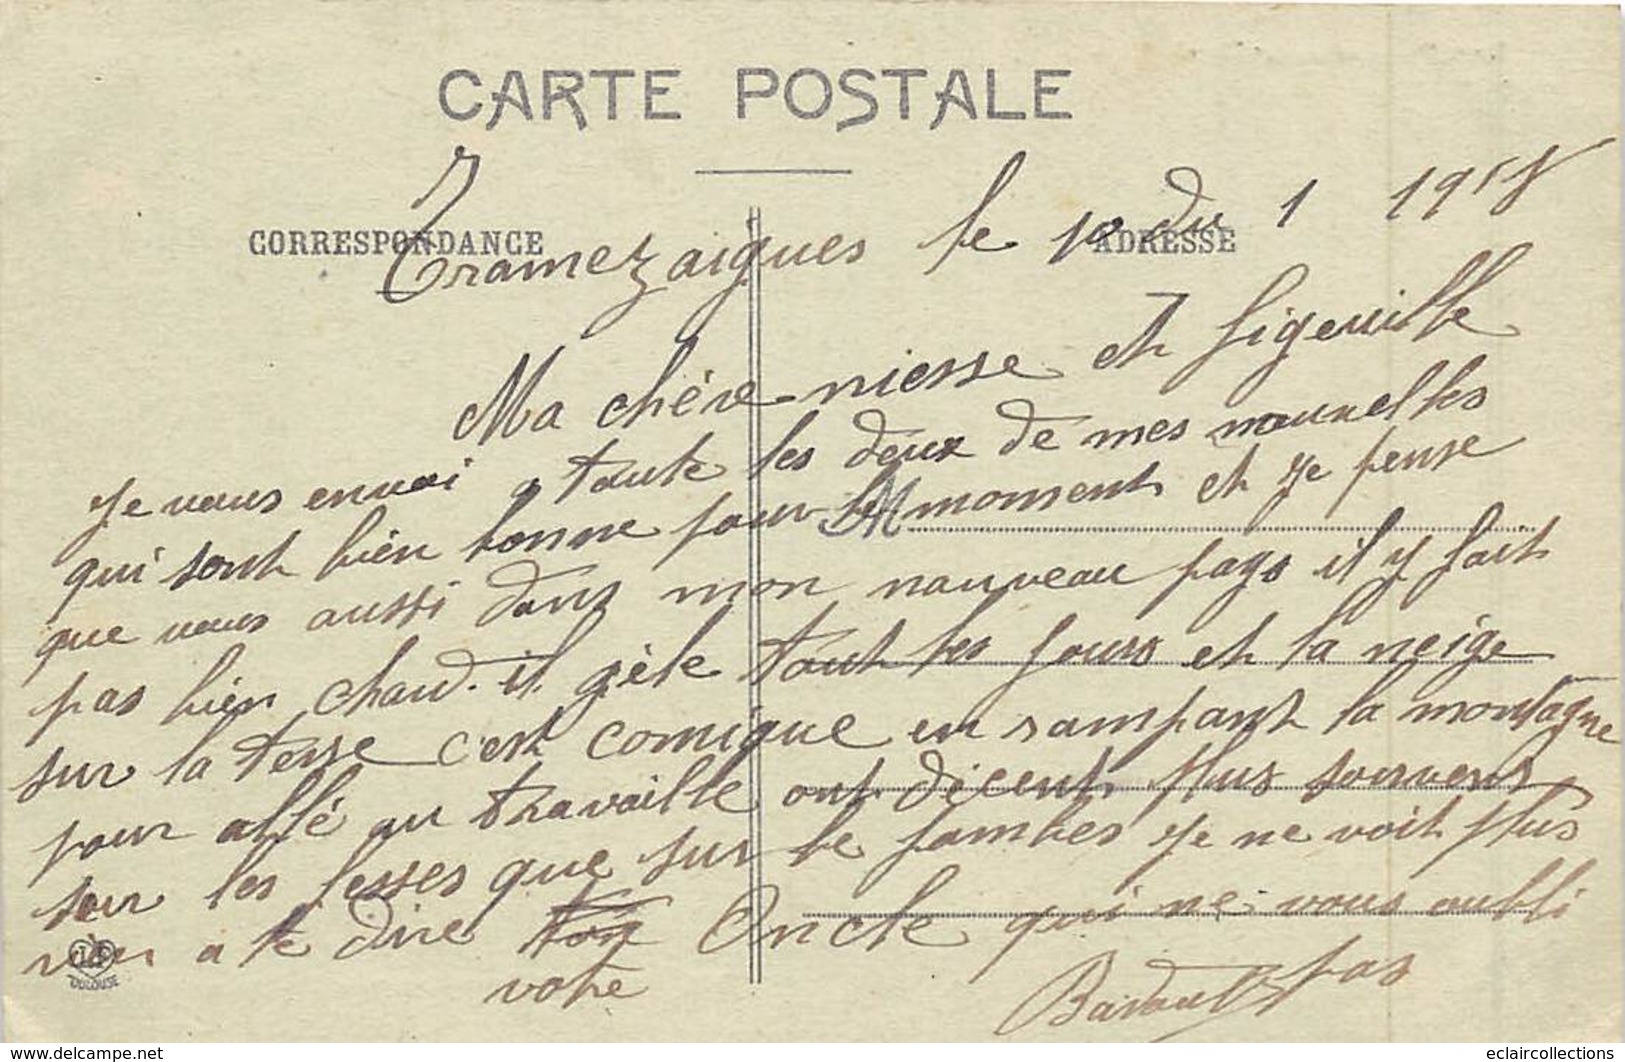 CARTE POSTALE
CORRESPONDANCE
ADRESSE
Tramezaigues le 10 du 1 1918
Ma chère niesse et
Je vous envoi a toute les deux de mes nouvelles
qui sont bien bonne pour le moment et je pense
M
que vous aussi dans mon nouveau pays il y fait
pas bien chaud. il gèle tout les jours et la neige
sur la terre c'est comique en rampant la montagne
pour allé au travaille ont dècent plus souvent
sur les fesses que sur le jambes Je ne voit plus
rien a te dire ton Oncle qui ne vous oubli
votre
pas
TOULOUSE
www.delcampe.net
eclaircollections